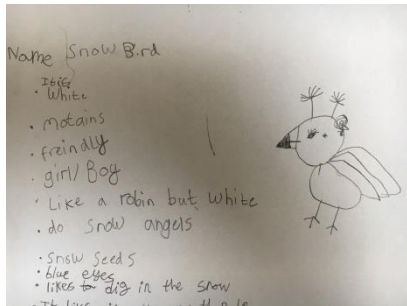 Name Snow Bird
It is
• White
• motains
• freindly
• girl/Boy
• Like a robin but white
• do snow angels
• Snow Seeds
• blue eyes
• likes to dig in the snow
• It